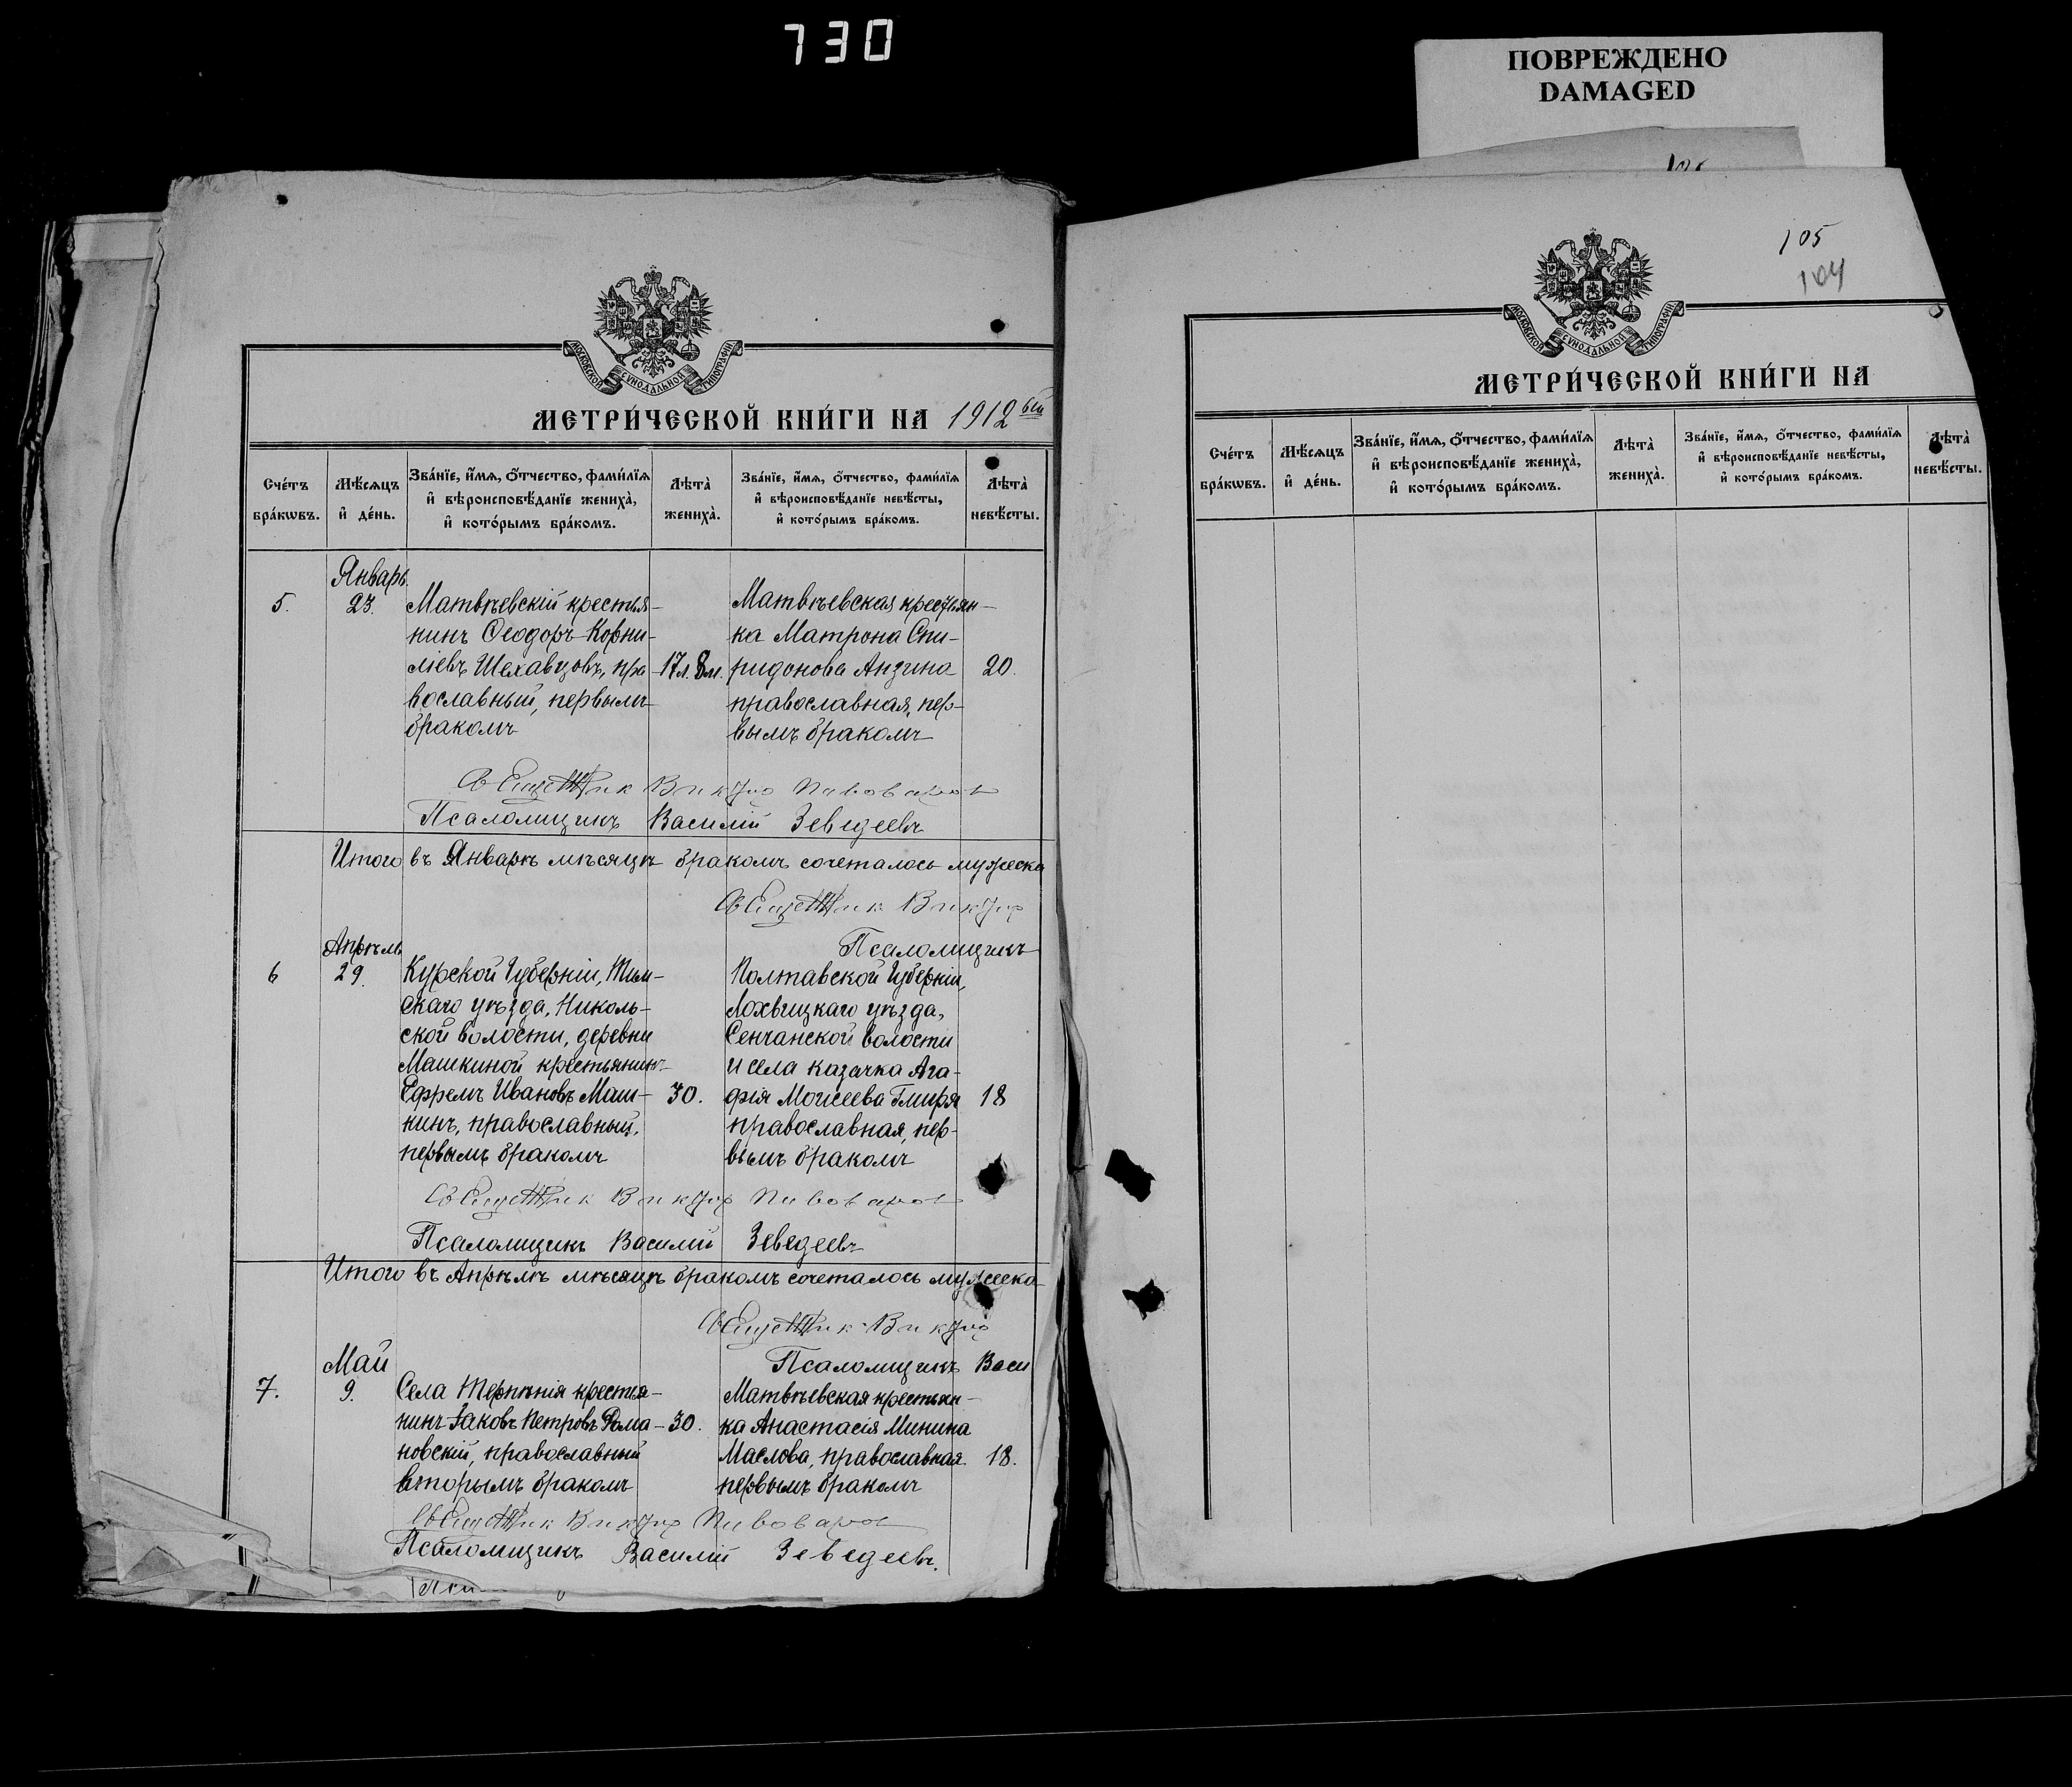 730
ПОВРЕЖДЕНО
DAMAGED
МОСКОВСКОЙ СУНОДАЛЬНОЙ ТИПОГРАФІИ
МЕТРИ́ЧЕСКОЙ КНИ́ГИ НА 1912 ый
Сче́тъ бра́кѡвъ.
Мѣ́сѧцъ и҆ де́нь.
Зва́нїе, и҆́мѧ, ѻ҆́тчество, фами́лїѧ
и҆ вѣроисповѣ́данїе жениха̀,
и҆ кото́рымъ бра́комъ.
Лѣта̀ жениха̀.
Зва́нїе, и҆́мѧ, ѻ҆́тчество, фами́лїѧ
и҆ вѣроисповѣ́данїе невѣ́сты,
и҆ кото́рымъ бра́комъ.
Лѣта̀ невѣ́сты.
Январь
5.
23.
Матвѣевскій крестья-
нинъ Ѳеодоръ Корни-
ліевъ Шехавцовъ, пра
вославный, первымъ
бракомъ
17 л. 8 м.
Матвѣевская крестьян-
ка Матрона Спи-
ридонова Анзина
православная, пер-
вымъ бракомъ
20.
Священник Виктор Пивоваров
Псаломщикъ Василій Зеведеевъ
Итого въ Январѣ мѣсяцѣ бракомъ сочеталось мужеска
Священник Виктор
Псаломщикъ
Апрѣль
6
29.
Курской Губерніи, Тим-
скаго уѣзда, Николь-
ской волости, деревни
Машкиной крестьянинъ
Ефремъ Ивановъ Маш-
кинъ, православный,
первымъ бракомъ
30.
Полтавской Губерніи,
Лохвицкаго уѣзда,
Сенчанской волости
и села казачка Ага-
фія Моисеева Гмиря
православная, пер-
вымъ бракомъ
18
Священник Виктор Пивоваров
Псаломщикъ Василій Зеведеевъ
Итого въ Апрѣлѣ мѣсяцѣ бракомъ сочеталось мужеска
Священник Виктор
Псаломщикъ Васи
Май
7.
9.
Села Терпѣнія крестья-
нинъ Іаковъ Петровъ Рома-
новскій, православный
вторымъ бракомъ
30.
Матвѣевская крестьян-
ка Анастасія Минина
Маслова, православная
первымъ бракомъ
18.
Священник Виктор Пивоваров
Псаломщикъ Василій Зеведеевъ.
105
104
МОСКОВСКОЙ СУНОДАЛЬНОЙ ТИПОГРАФІИ
МЕТРИ́ЧЕСКОЙ КНИ́ГИ НА
Сче́тъ бра́кѡвъ.
Мѣ́сѧцъ и҆ де́нь.
Зва́нїе, и҆́мѧ, ѻ҆́тчество, фами́лїѧ
и҆ вѣроисповѣ́данїе жениха̀,
и҆ кото́рымъ бра́комъ.
Лѣта̀ жениха̀.
Зва́нїе, и҆́мѧ, ѻ҆́тчество, фами́лїѧ
и҆ вѣроисповѣ́данїе невѣ́сты,
и҆ кото́рымъ бра́комъ.
Лѣта̀ невѣ́сты.